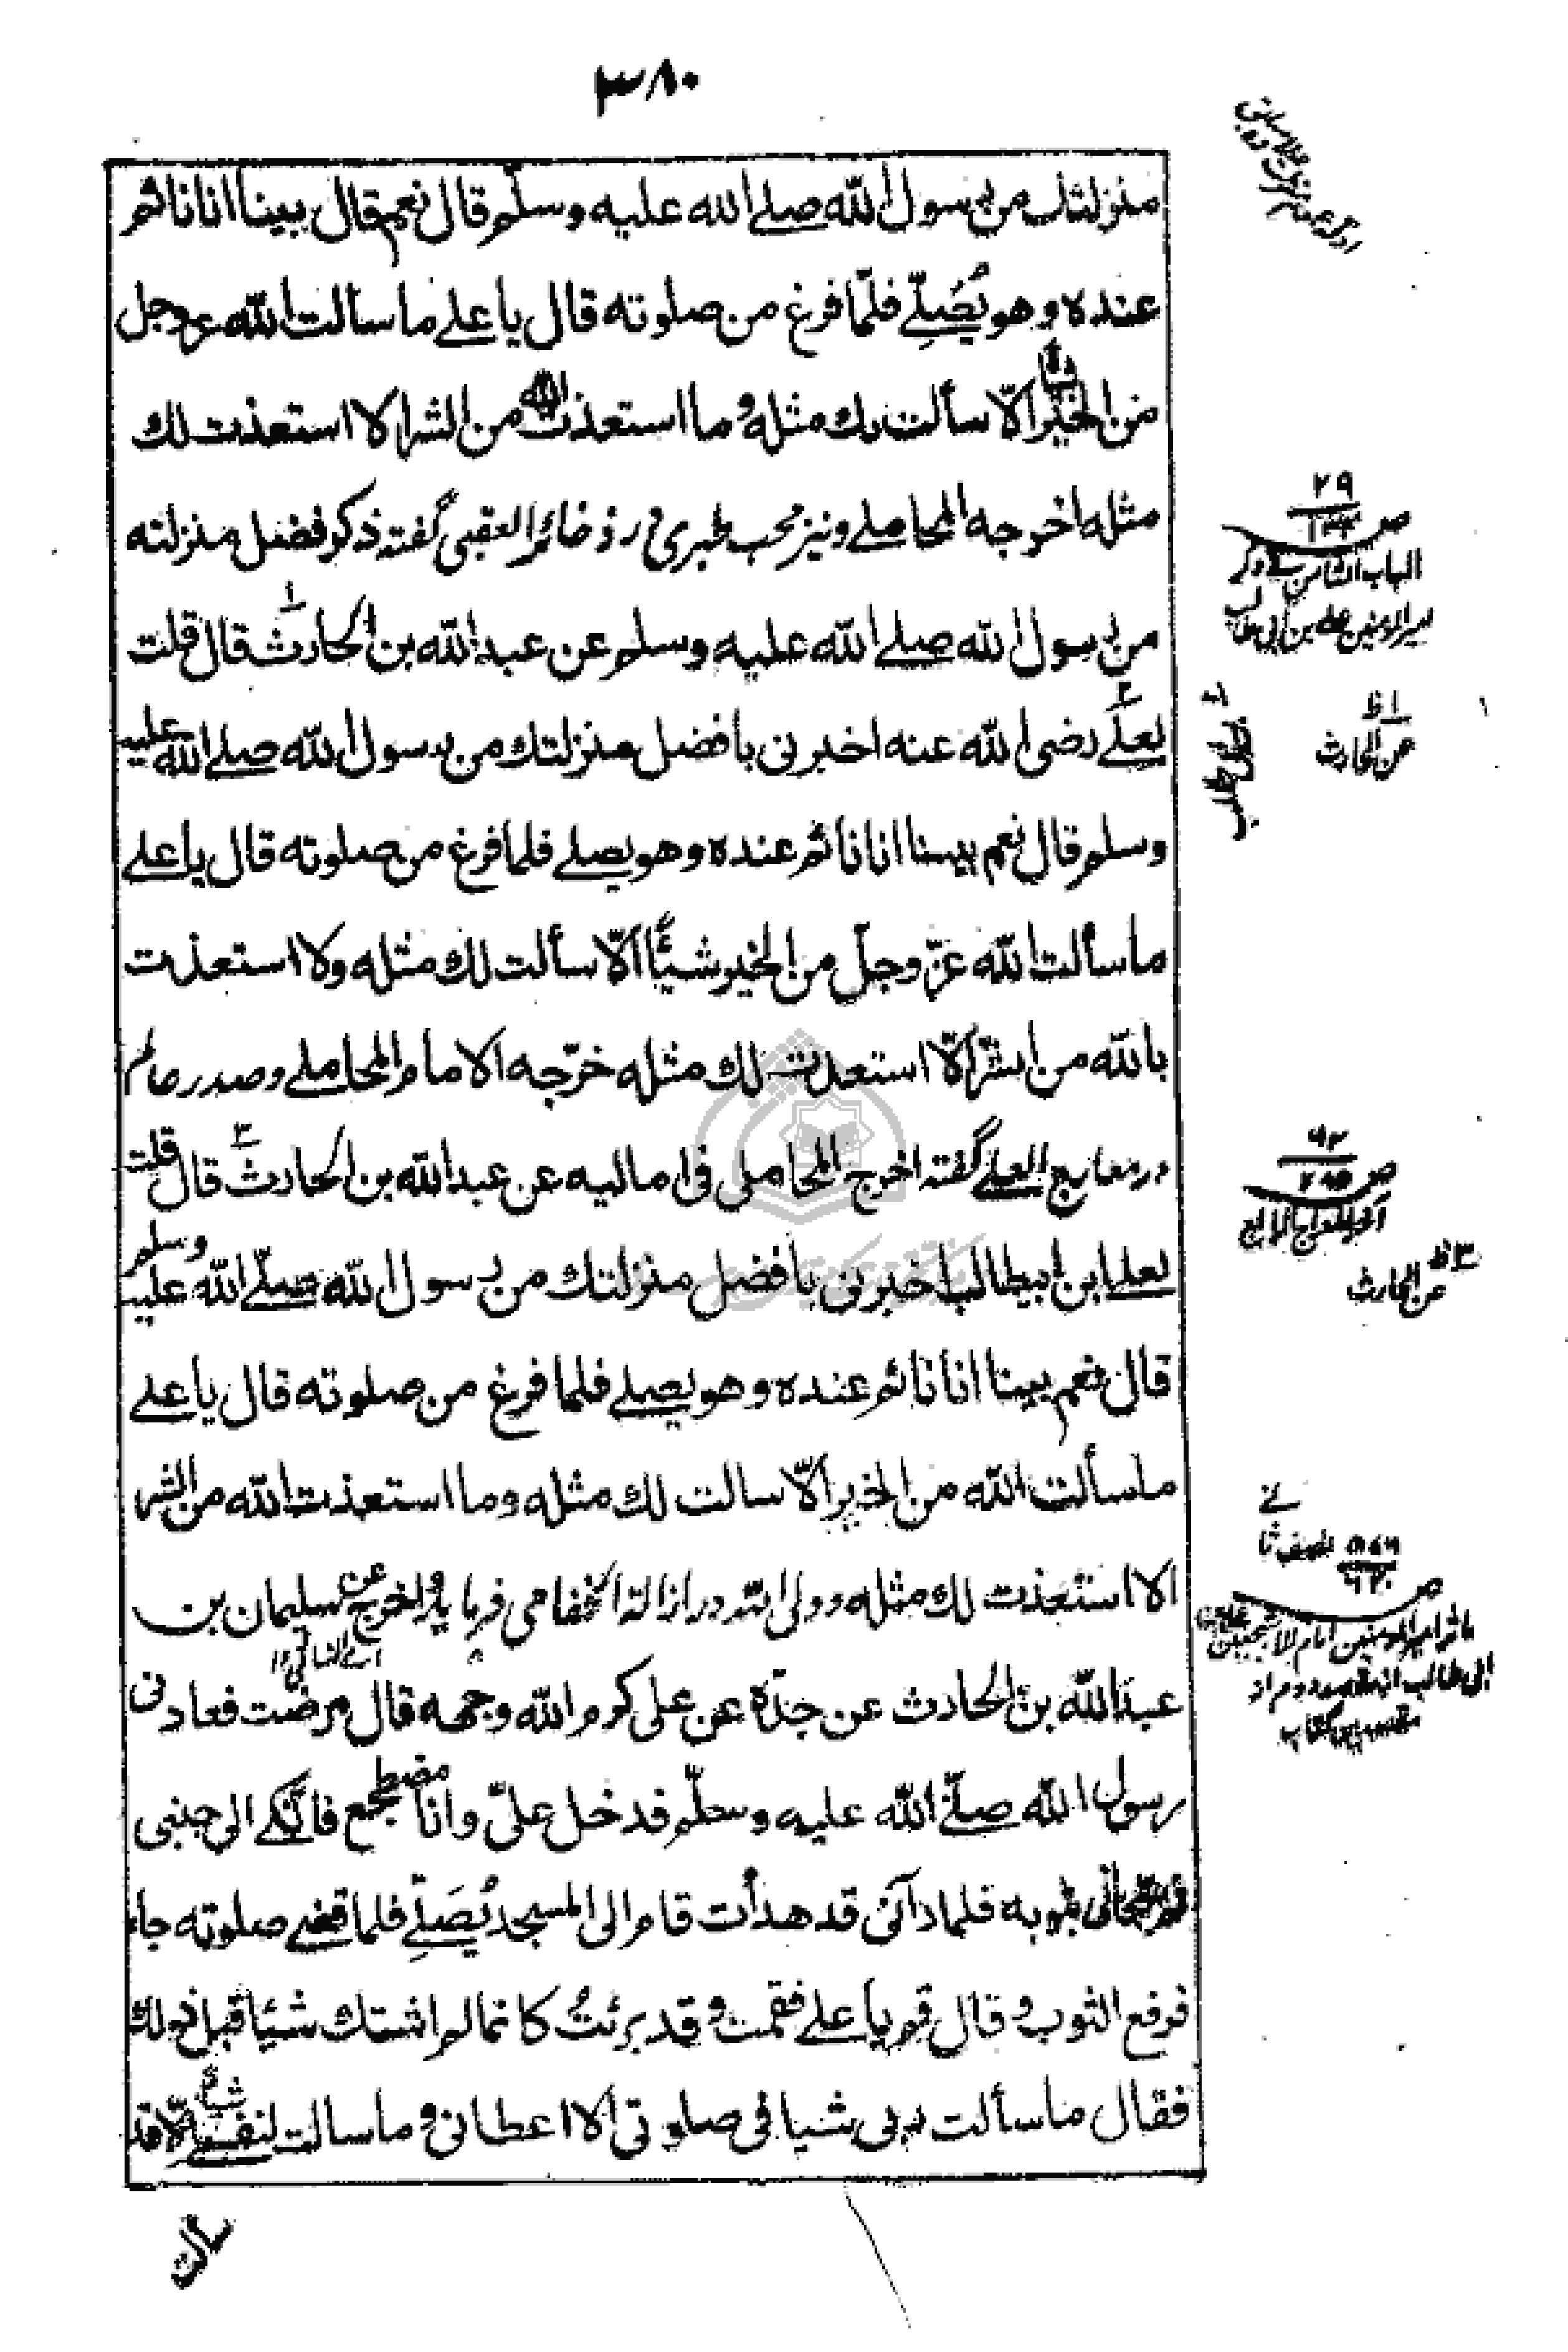 ٣٨٠
منزلتك من رسول الله صلے الله عليه وسلم قال نعم قال بينا انا نائم
عنده وهو يُصَلِّے فلمّا فرغ من صلوته قال يا علے ما سالت الله عزوجل
من الخير شيئا الّا سألت لك مثله وما استعذت الله من الشر الا استعذت لك
مثله اخرجه المحاملے ونيز محب طبرى در ذخائر العقبى گفته ذكر فضل منزلته
من رسول الله صلے الله عليه وسلم عن عبد الله بن الحارث قال قلت
لعلے رضى الله عنه اخبرنى بافضل منزلتك من رسول الله صلے الله عليه
وسلم قال نعم بينا انا نائم عنده وهو يصلے فلما فرغ من صلوته قال يا علے
ما سألت الله عزّ وجلّ من الخير شيئًا الّا سألت لك مثله ولا استعذت
بالله من الشرّ الّا استعذت لك مثله خرّجه الامام المحاملے وصدر عالم
در معارج العلے گفته اخرج المحاملى فى اماليه عن عبد الله بن الحارث قال قلت
لعلے ابن ابيطالب اخبرنى بافضل منزلتك من رسول الله صلّے الله عليه وسلم
قال نعم بينا انا نائم عنده وهو يصلے فلما فرغ من صلوته قال يا علے
ما سألت الله من الخير الّا سالت لك مثله وما استعذت الله من الشر
الا استعذت لك مثله وولى الله در ازالة الخفا مى فرمايد واخرج عن سليمان بن
عبد الله بن الحارث عن جدّه عن على كرم الله وجهه قال مرضت فعادنى
رسول الله صلّے الله عليه وسلّم فدخل علىّ وانا مضطجع فاتّكے الى جنبى
بثوبه فلما رآنى قد هدأت قام الى المسجد يُصَلِّے فلما قضے صلوته جاء
فرفع الثوب وقال قم يا علے فقمت وقد برئتُ كانما لم اشتك شيئا قبل ذلك
فقال ما سألت ربى شيا فى صلوتى الا اعطانى وما سالت لنفسے شيئا الّا قد
سألت
٢٩
١٣٣
الباب الثامن فے ذكر
امير المومنين علے بن ابى طالب
١ ظ
عن الحارث
٢ ابن ابى طالب
٩٢
ص
المعراج الرابع
٣ ظ
عن الحارث
نصف ثانے
ص
ماثر امير المومنين امام الاشجعين على بن
ابى طالب از مقصد دوم از